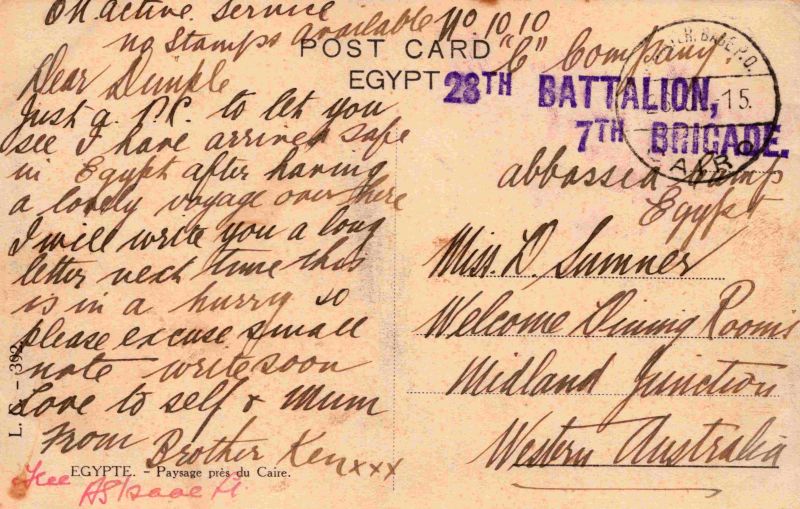 On active service
no stamps available No 1010
POST CARD
EGYPT
"C" Company.
28TH BATTALION,
7TH BRIGADE.
BASE P.O.
15.
abbassea Camp
Egypt
Dear Dimple
Just a P.C. to let you
see I have arrived safe
in Egypt after having
a lovely voyage over there
I will write you a long
letter next time this
is in a hurry so
please excuse small
note write soon
Love to self & Mum
From Brother Ken xxx
Miss. D. Sumner
Welcome Dining Rooms
Midland Junction
Western Australia
EGYPTE. – Paysage près du Caire.